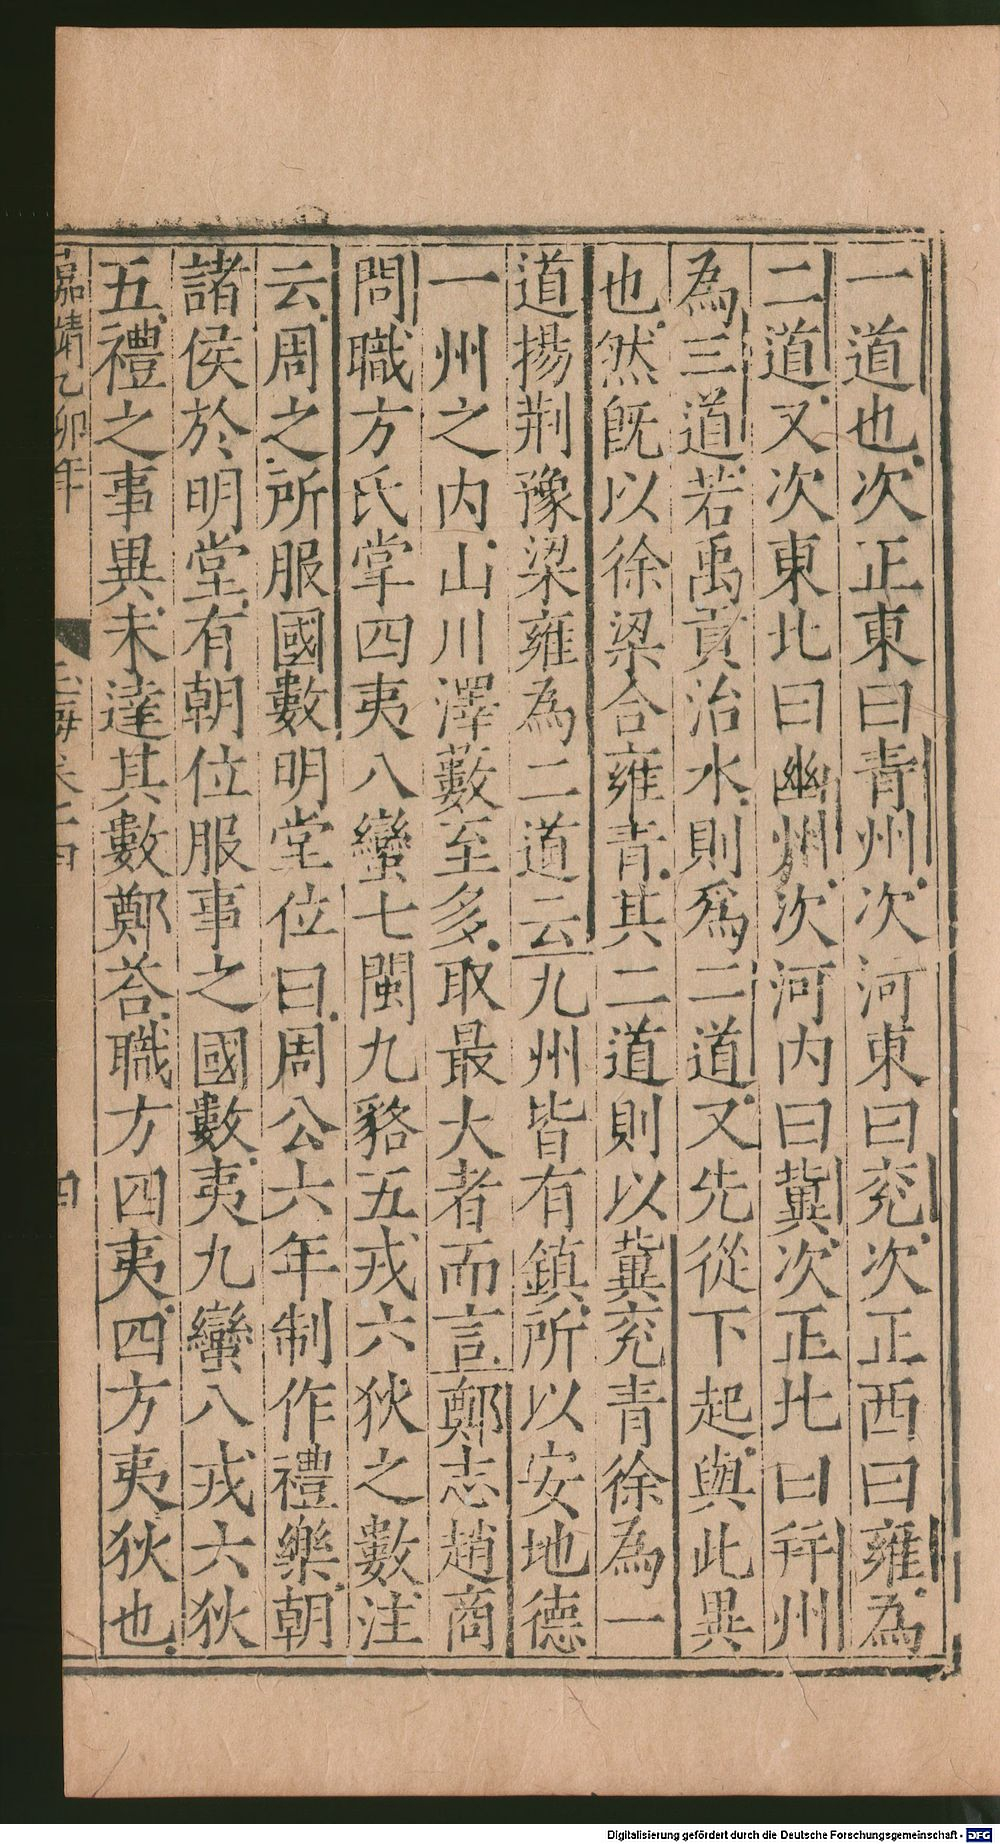 一道也次正東曰青州次河東曰兖次正西曰雍為
二道又次東北曰幽州次河内曰冀次正北曰幷州
為三道若禹貢治水則爲二道又先從下起與此異
也然旣以徐梁合雍青其二道則以冀兖青徐為一
道揚荆豫梁雍為二道云九州皆有鎮所以安地德
一州之内山川澤藪至多取最大者而言鄭志趙商
問職方氏掌四夷八蠻七閩九貉五戎六狄之數注
云周之所服國數明堂位曰周公六年制作禮樂朝
諸侯於明堂有朝位服事之國數夷九蠻八戎六狄
五禮之事異未達其數鄭荅職方四夷四方夷狄也
嘉靖乙卯年
玉海卷二四
四
Digitalisierung gefördert durch die Deutsche Forschungsgemeinschaft - DFG